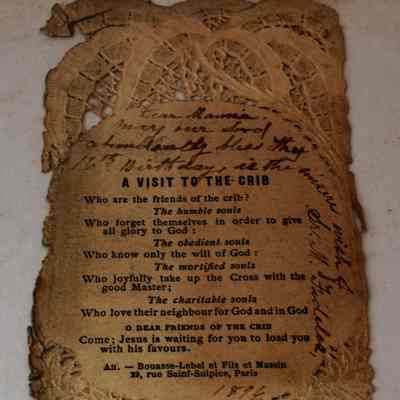 Dear Mamma,
May our Lord
abundantly bless thy
th Birthday, is the
sincere wish of
Sr. M.
A VISIT TO THE CRIB
Who are the friends of the crib?
The humble souls
Who forget themselves in order to give
all glory to God:
The obedient souls
Who know only the will of God:
The mortified souls
Who joyfully take up the Cross with the
good Master;
The charitable souls
Who love their neighbour for God and in God
O DEAR FRIENDS OF THE CRIB
Come; Jesus is waiting for you to load you
with his favours.
An. — Bouasse-Lebel et Fils et Massin
29, rue Saint-Sulpice, Paris